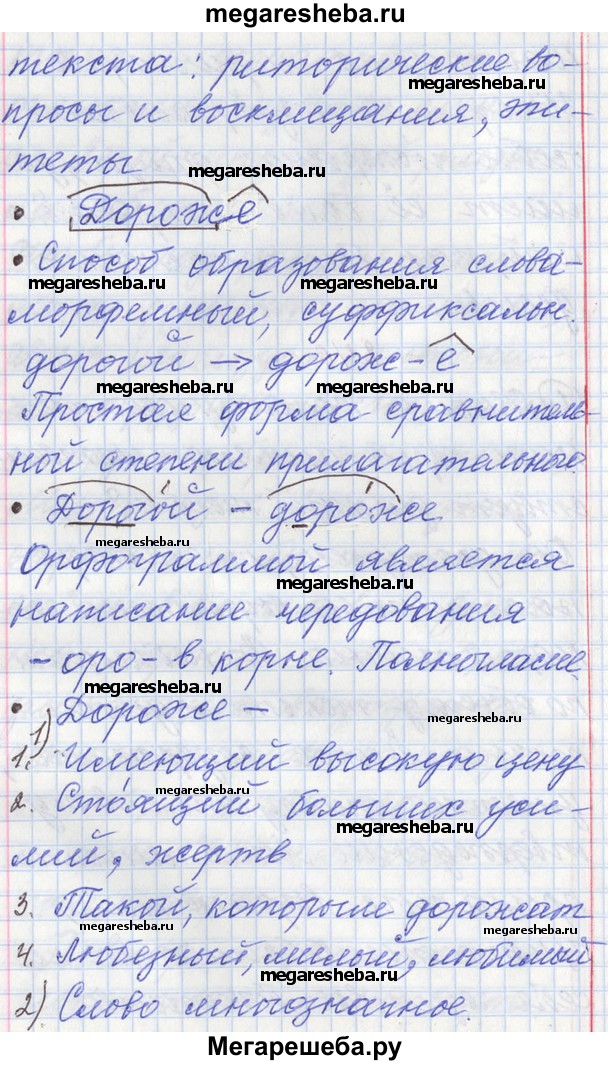 megaresheba.ru
текста: риторические во-
просы и восклицания, эпи-
теты
megaresheba.ru
• Дороже
• Способ образования слова-
megaresheba.ru megaresheba.ru
морфемный, суффиксальн.
дорогой → дорож-е
megaresheba.ru megaresheba.ru
Простая форма сравнитель-
ной степени прилагательного
• Дорогой - дороже
megaresheba.ru
Орфограммой является
megaresheba.ru
написание чередования
-оро- в корне. Полногласие
megaresheba.ru
• Дороже -
megaresheba.ru
1)
1. Имеющий высокую цену
megaresheba.ru
2. Стоящий больших уси-
megaresheba.ru
лий, жертв
3. Такой, которым дорожат
4. Любезный, милый, любимый
megaresheba.ru
2) Слово многозначное.
Мегарешеба.ру